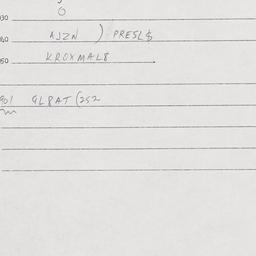 030
040 AJZN ) PRESL$
050 KROXMAL8
901 GL8AT (252